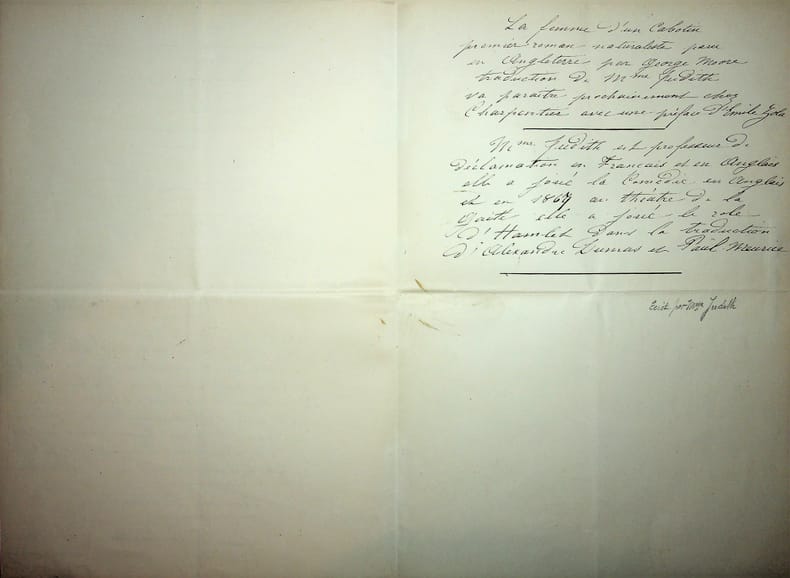 La femme d'un Cabotin
premier roman naturaliste paru
en Angleterre par George Moore
traduction de Mme Judith
va paraître prochainement chez
Charpentier avec une préface d'Emile Zola
Mme Judith est professeur de
déclamation en Francais et en Anglais
elle a joué la Comédie en Anglais
et en 1867 au théâtre de la
Gaîté elle a joué le role
d'Hamlet dans la traduction
d'Alexandre Dumas et Paul Meurice
Ecrit par Mme Judith